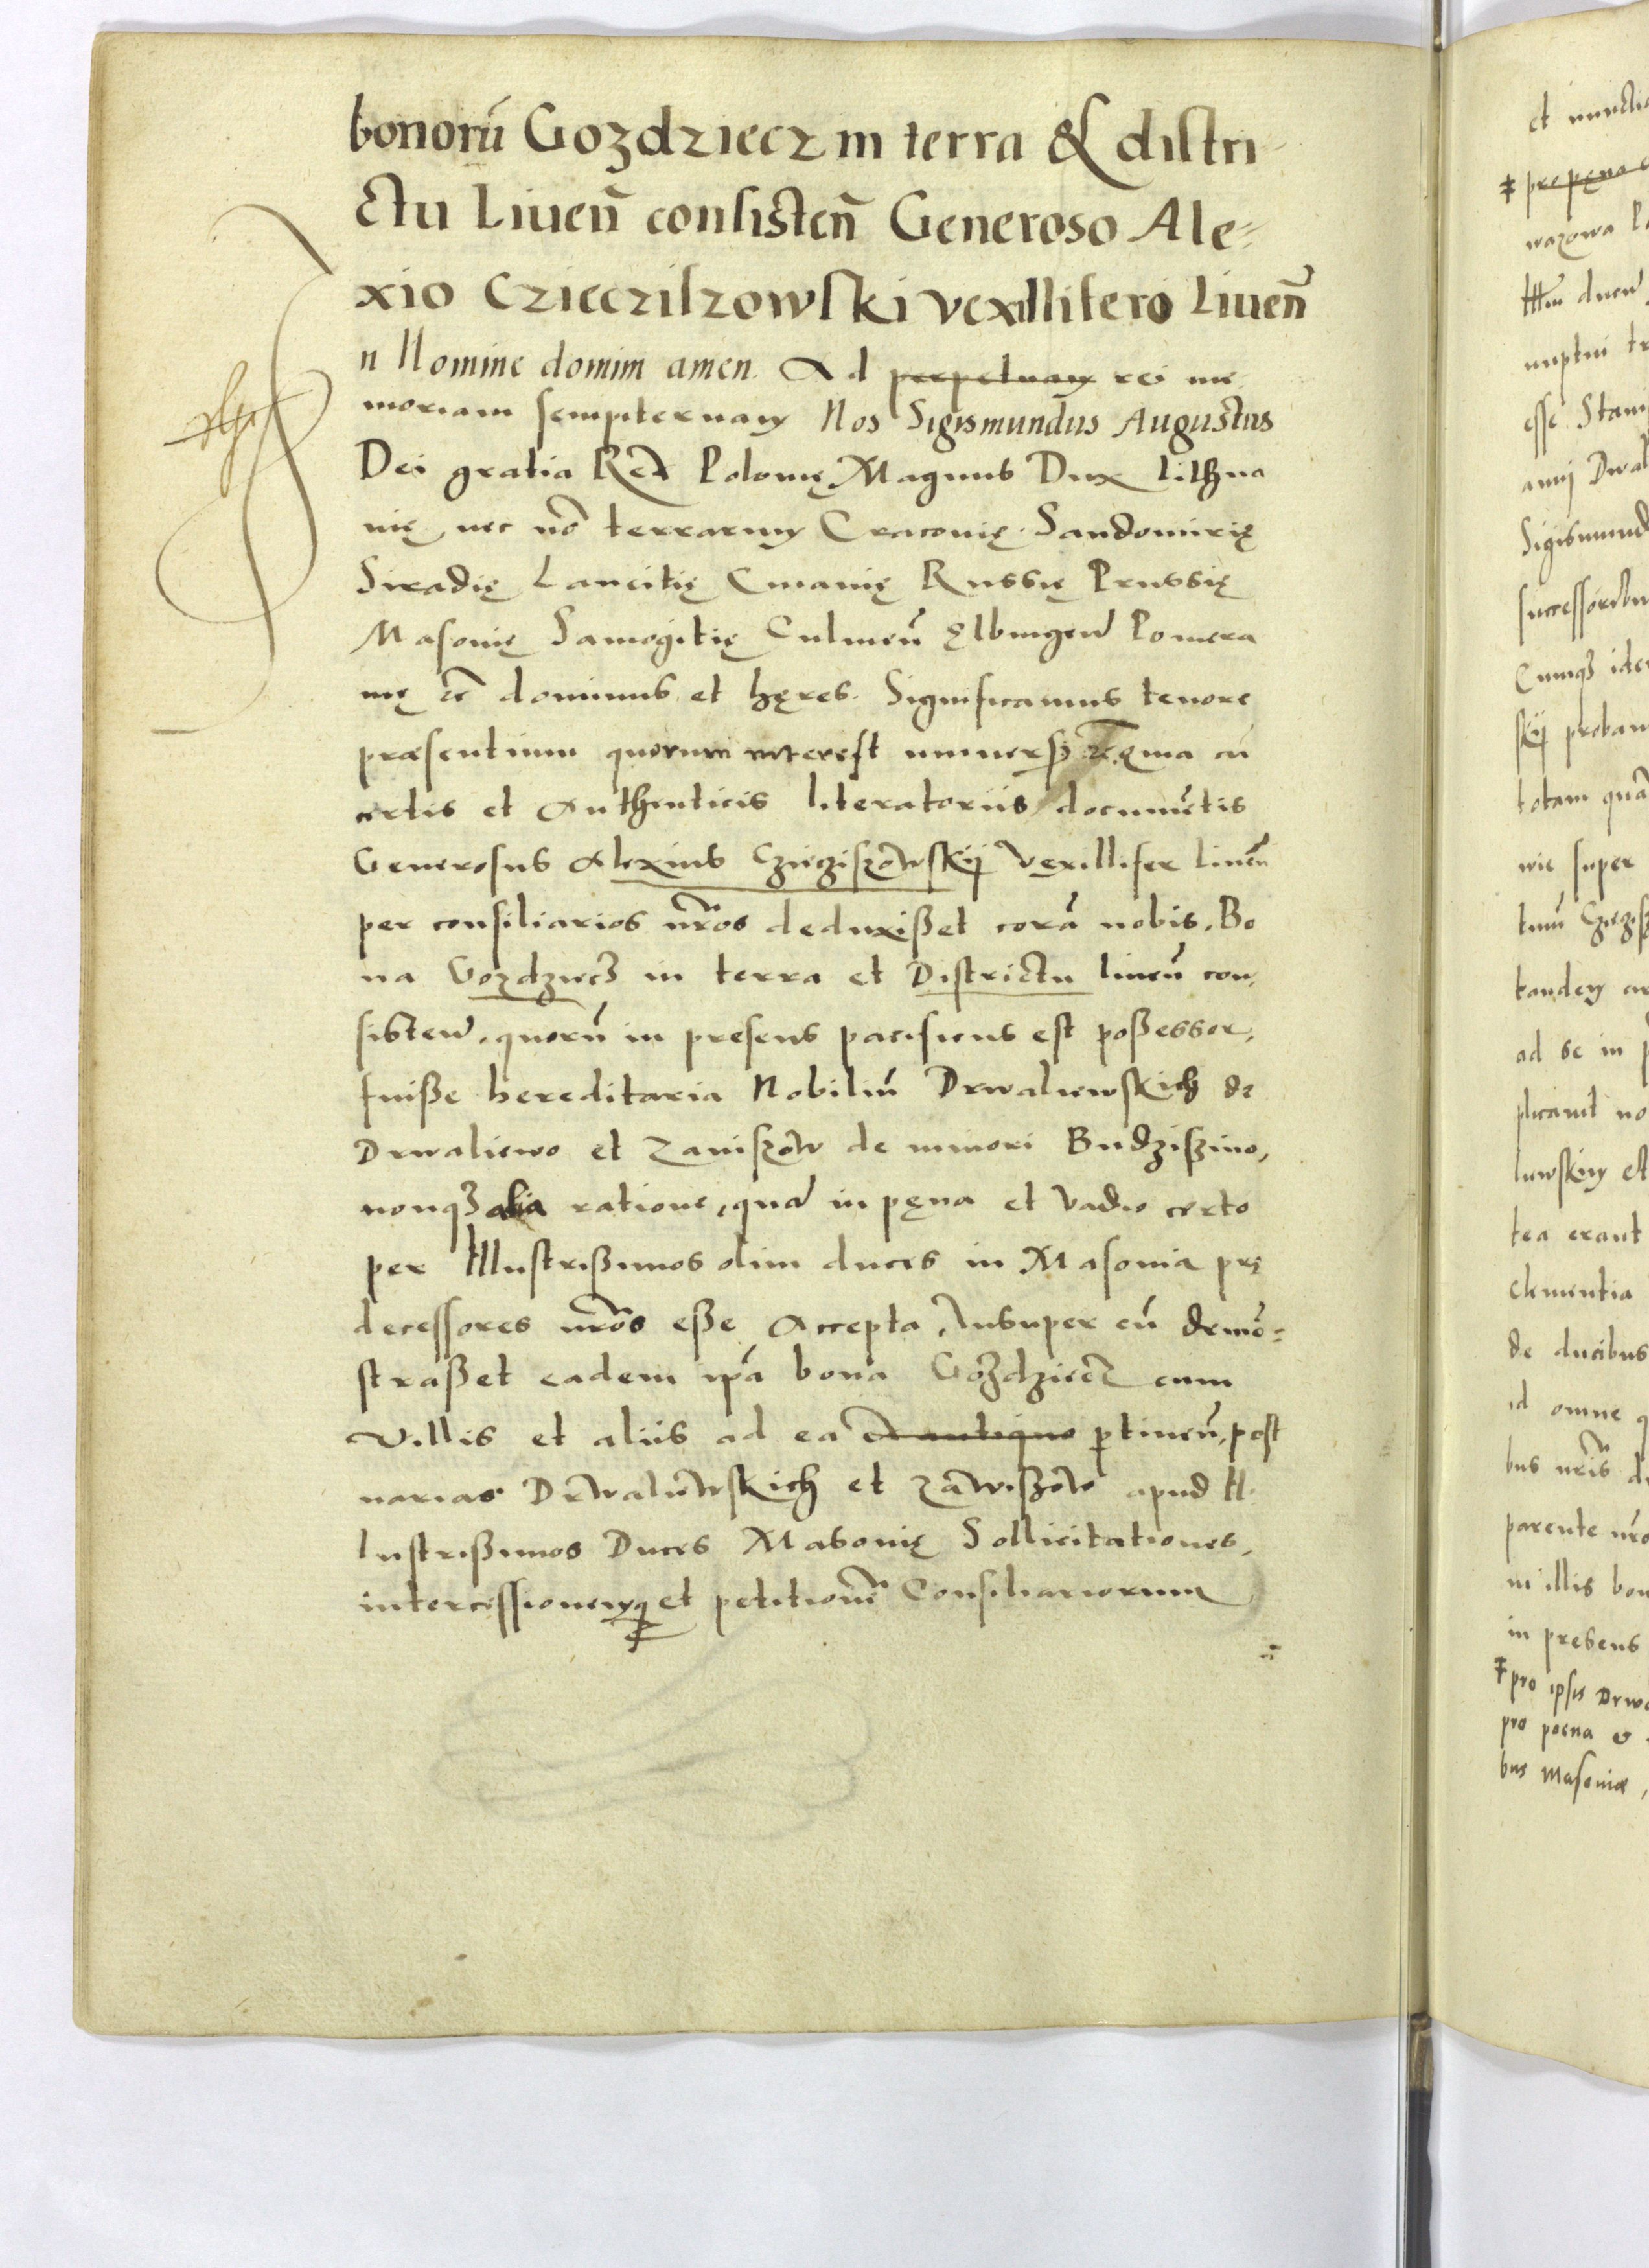 bonorū Gozdziecz in terra & distri
ctu Liueñ consisteñ Generoso Ale=
xio Cziecziszowski vexillifero Liueñ
n Nomine domini amen. Ad perpetuam rei me
moriam sempiternam Nos Sigismundus Augustus
Dei gratia Rex Polonię Magnus Dux Lithua
nię, nec nō terrarum Cracouię Sandomirię
Siradię Lancitię Cuiauię Russię Prussię
Masouię Samogitię Culmeñ Elbingeñ Pomera
nię ec̄ dominus et hęres. Significamus tenore
præsentium quorum interest uniuersis cū
certis et Authenticis literatoriis documētis
Generosus Alexius Cziecziszowskij Vexillifer Liueñ
per consiliarios nr̄os deduxißet corā nobis. Bo
na Gozdziecz in terra et Districtu liueñ con,
sisteñ, quorū in presens pacificus est poßessor,
fuiße hereditaria Nobiliū Drwaliewskich de
Drwaliewo et Zaniszow de minori Budziszino,
nonqz alia ratione, quā in pęna et vadio certo
per Illustrißimos olim duces in Masouia prę
decessores nr̄os eße Accepta, Insuper cū demō=
straßet eadem ipā bona Gozdziecz cum
villis et aliis ad ea ex antiquo ptineñ, post
uarias Drwaliewskich et Zawiszow apud Il
lustrißimos Duces Masouię Sollicitationes,
intercessionemq et petitionē Consiliariorum
et nunctia
pro pęna
wazowa
Illm̄ ducū
nuptui tr
esse Stani
Sigismund
successoribu
Cumqz ide
skij proban
totam quā
wie super
tandem
ad se in p
plicauit no
lewskim et
tea erant
clementia
de ducibus
id omne q
bus nr̄is d
parente nr̄o
in illis bon
in presens
pro ipsis Drwa
pro poena &
bus Masouiæ,